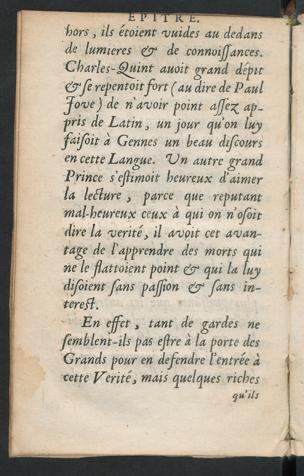 EPITRE.
hors, ils étoient vuides au dedans
de lumieres & de connoissances.
Charles-Quint avoit grand dépit
& se repentoit fort (au dire de Paul
Jove) de n'avoir point assez ap-
pris de Latin, un jour qu'on luy
faisoit à Gennes un beau discours
en cette Langue. Un autre grand
Prince s'estimoit heureux d'aimer
la lecture, parce que reputant
mal-heureux ceux à qui on n'osoit
dire la verité, il avoit cet avan-
tage de l'apprendre des morts qui
ne le flattoient point & qui la luy
disoient sans passion & sans in-
terest.
En effet, tant de gardes ne
semblent-ils pas estre à la porte des
Grands pour en defendre l'entrée à
cette Verité, mais quelques riches
qu'ils